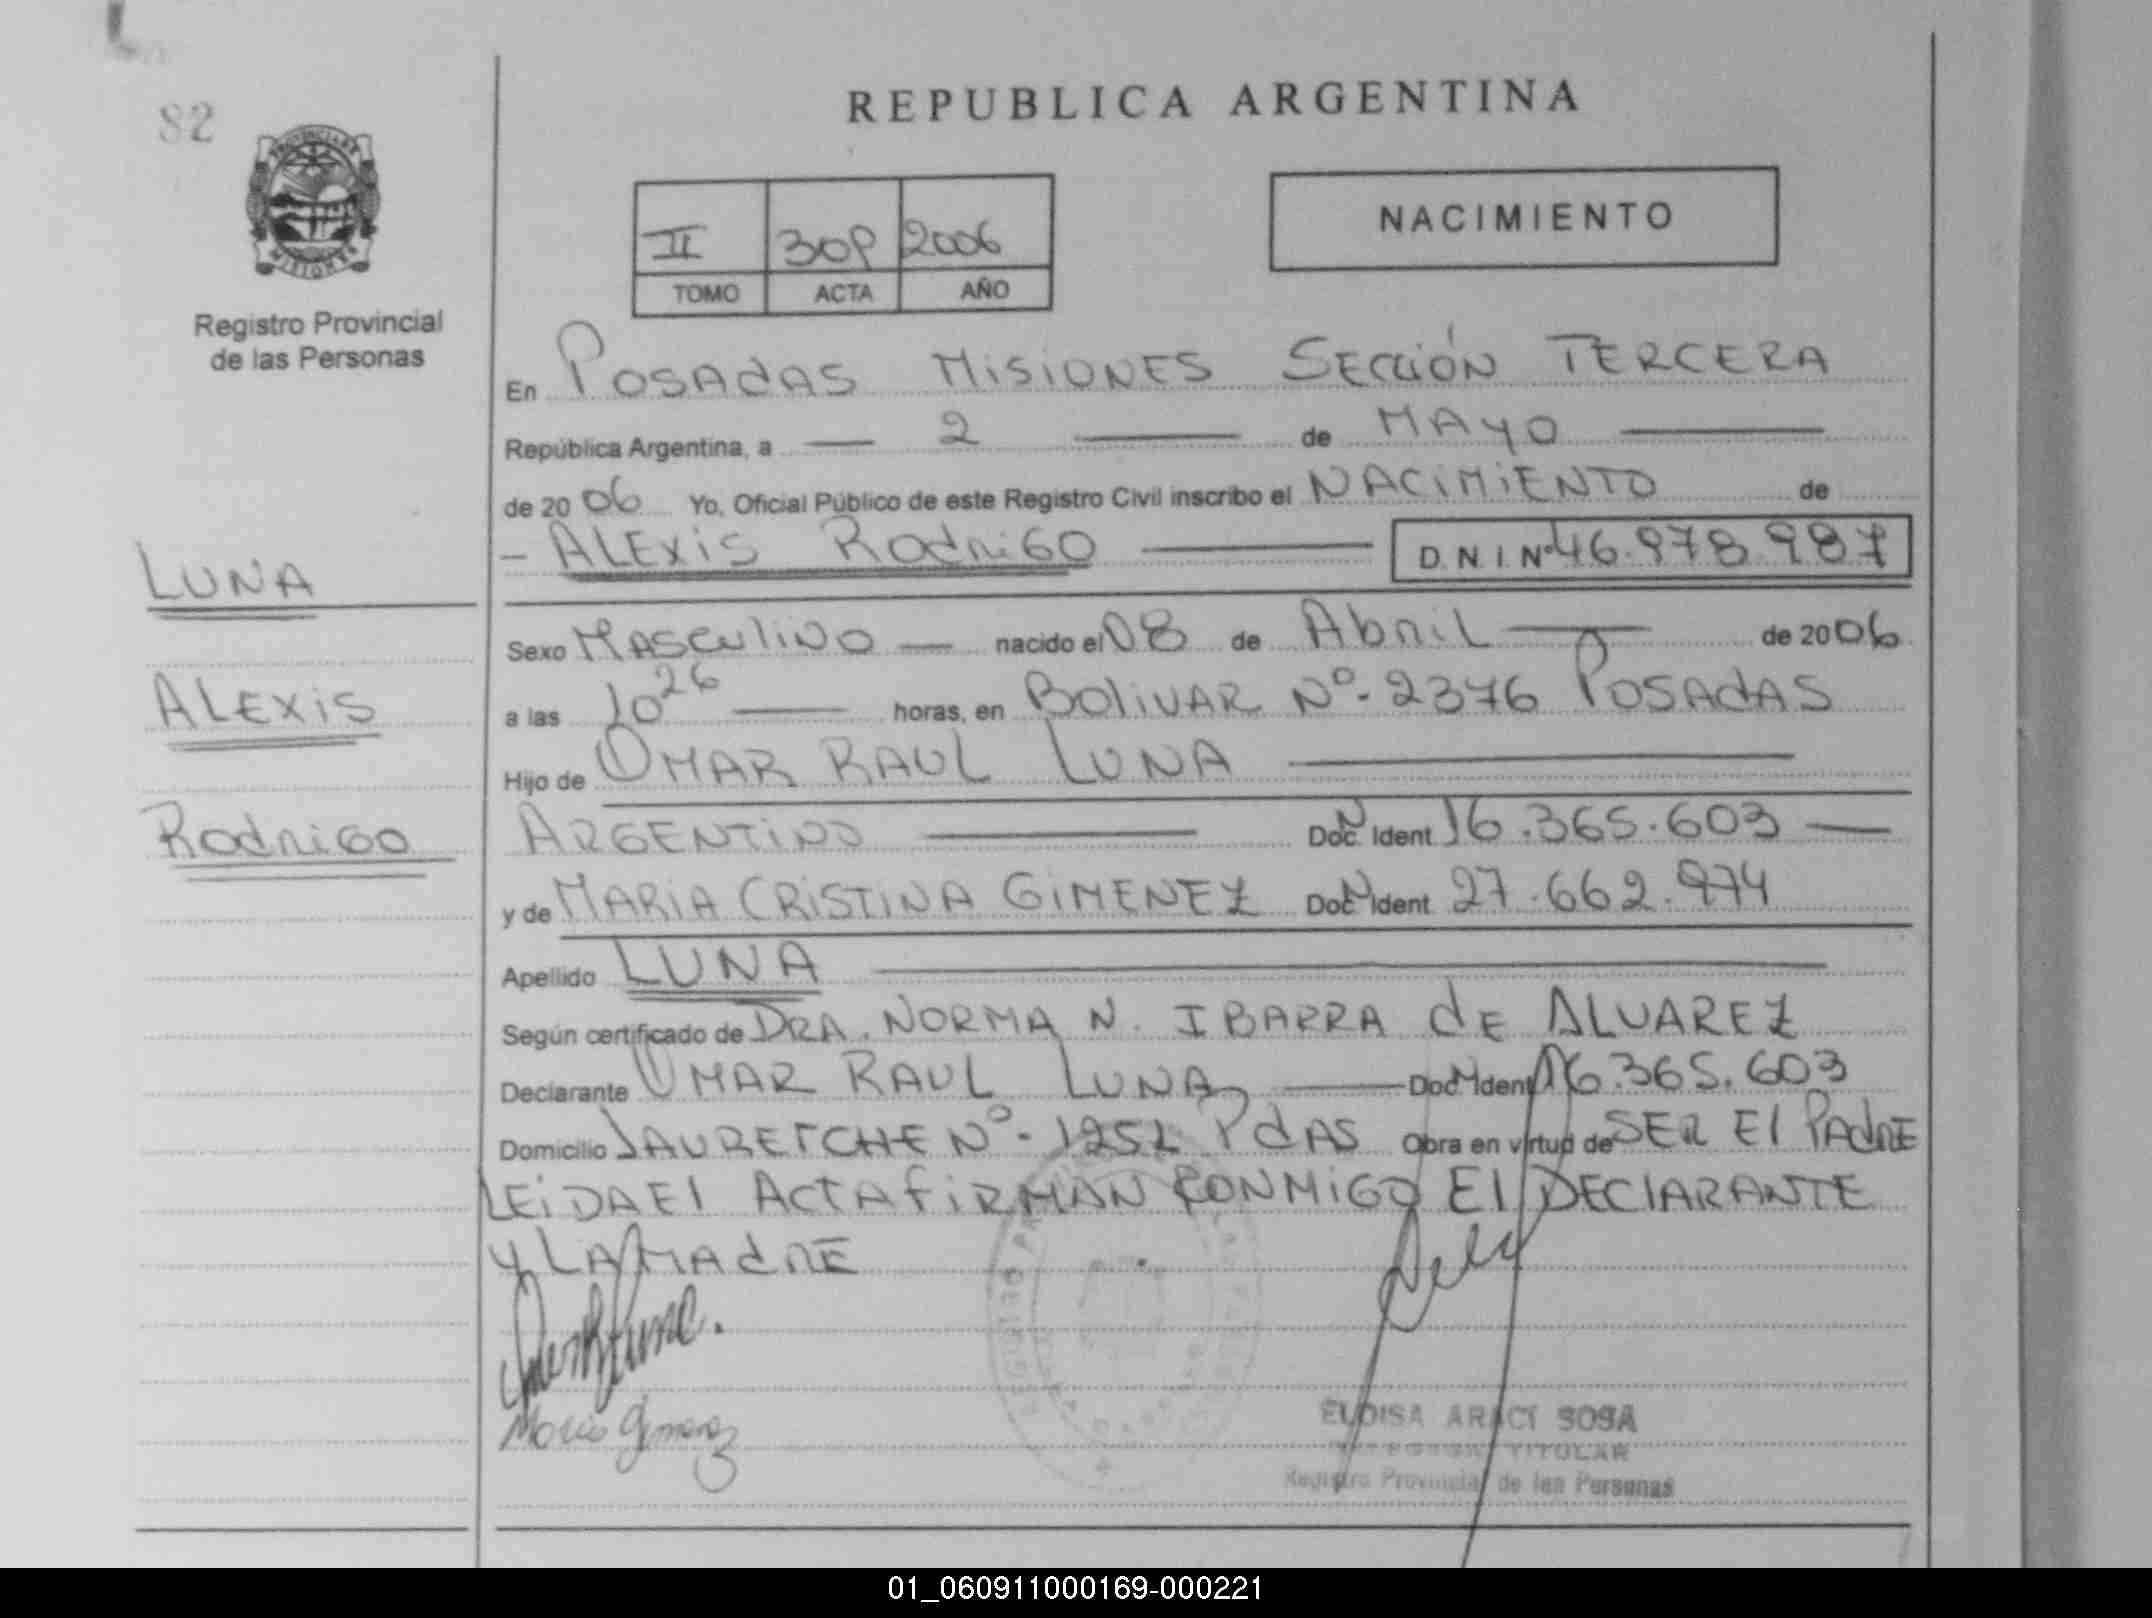 82
REPUBLICA ARGENTINA
PROVINCIA DE
MISIONES
Registro Provincial
de las Personas
II 309 2006
TOMO ACTA AÑO
NACIMIENTO
En POSADAS MISIONES SECCIÓN TERCERA
República Argentina, a — 2 — de MAYO —
de 2006 Yo, Oficial Público de este Registro Civil inscribo el NACIMIENTO de
- ALEXIS RODRIGO — D.N.I. Nº 46.978.987
LUNA
ALEXIS
RODRIGO
Sexo MASCULINO — nacido el 08 de Abril — de 2006
a las 10 26 — horas, en BOLIVAR Nº-2376 POSADAS
Hijo de OMAR RAUL LUNA —
ARGENTINO — Doc. Ident 16.365.603 —
y de MARIA CRISTINA GIMENEZ Doc. Ident. 27.662.974
Apellido LUNA —
Según certificado de DRA. NORMA N. IBARRA dE ALVAREZ
Declarante OMAR RAUL LUNA — Doc. Ident 16.365.603
Domicilio JAURETCHE Nº- PdAS Obra en virtud de SER El PAdRE
LEIDA El ACTA FIRMAN CONMIGO El DEClARANTE
Y LA MAdRE
Maria Gimenez
ELOISA ARACI SOSA
TITULAR
Registro Provincial de las Personas
01_060911000169-000221